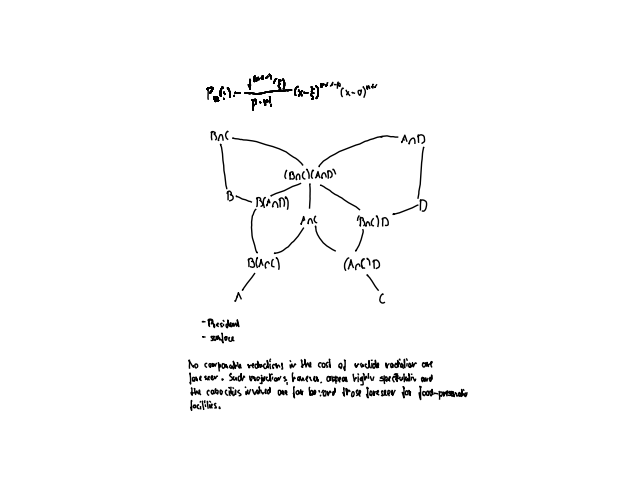 B∩C
A∩D
(B∩C)(A∩D)
B
B(A∩D)
D
A∩C
(B∩C)D
B(A∩C)
(A∩C)D
A
C
- President
- surface
No comparable reductions in the cost of nuclide radiation are
foreseen. Such projections, however, appear highly speculative and
the capacities involved are far beyond those foreseen for food-preservation
facilities.